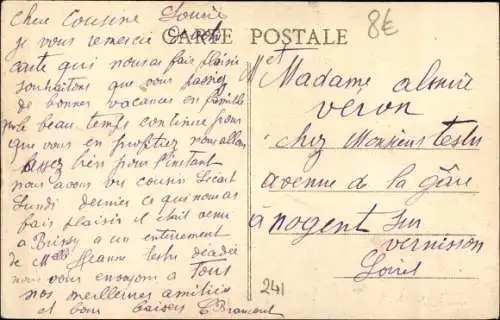 Chère Cousine Louise
je vous remercie
CARTE POSTALE
8€
carte qui nous a fait plaisir
souhaitons que vous passez
de bonnes vacances en famille
que le beau temps continue pour
que vous en profitiez nous allons
assez bien pour l'instant
nous avons vu cousin
Lundi dernier ce qui nous a
fait plaisir il était venu
a Brissy a un enterrement
de Jeanne testu
nous vous envoyons a Tous
nos meilleures amitiés
et bons baisers
Madame
véron
chez Monsieur testu
avenue de la gare
a nogent sur
vernisson
Loiret
241